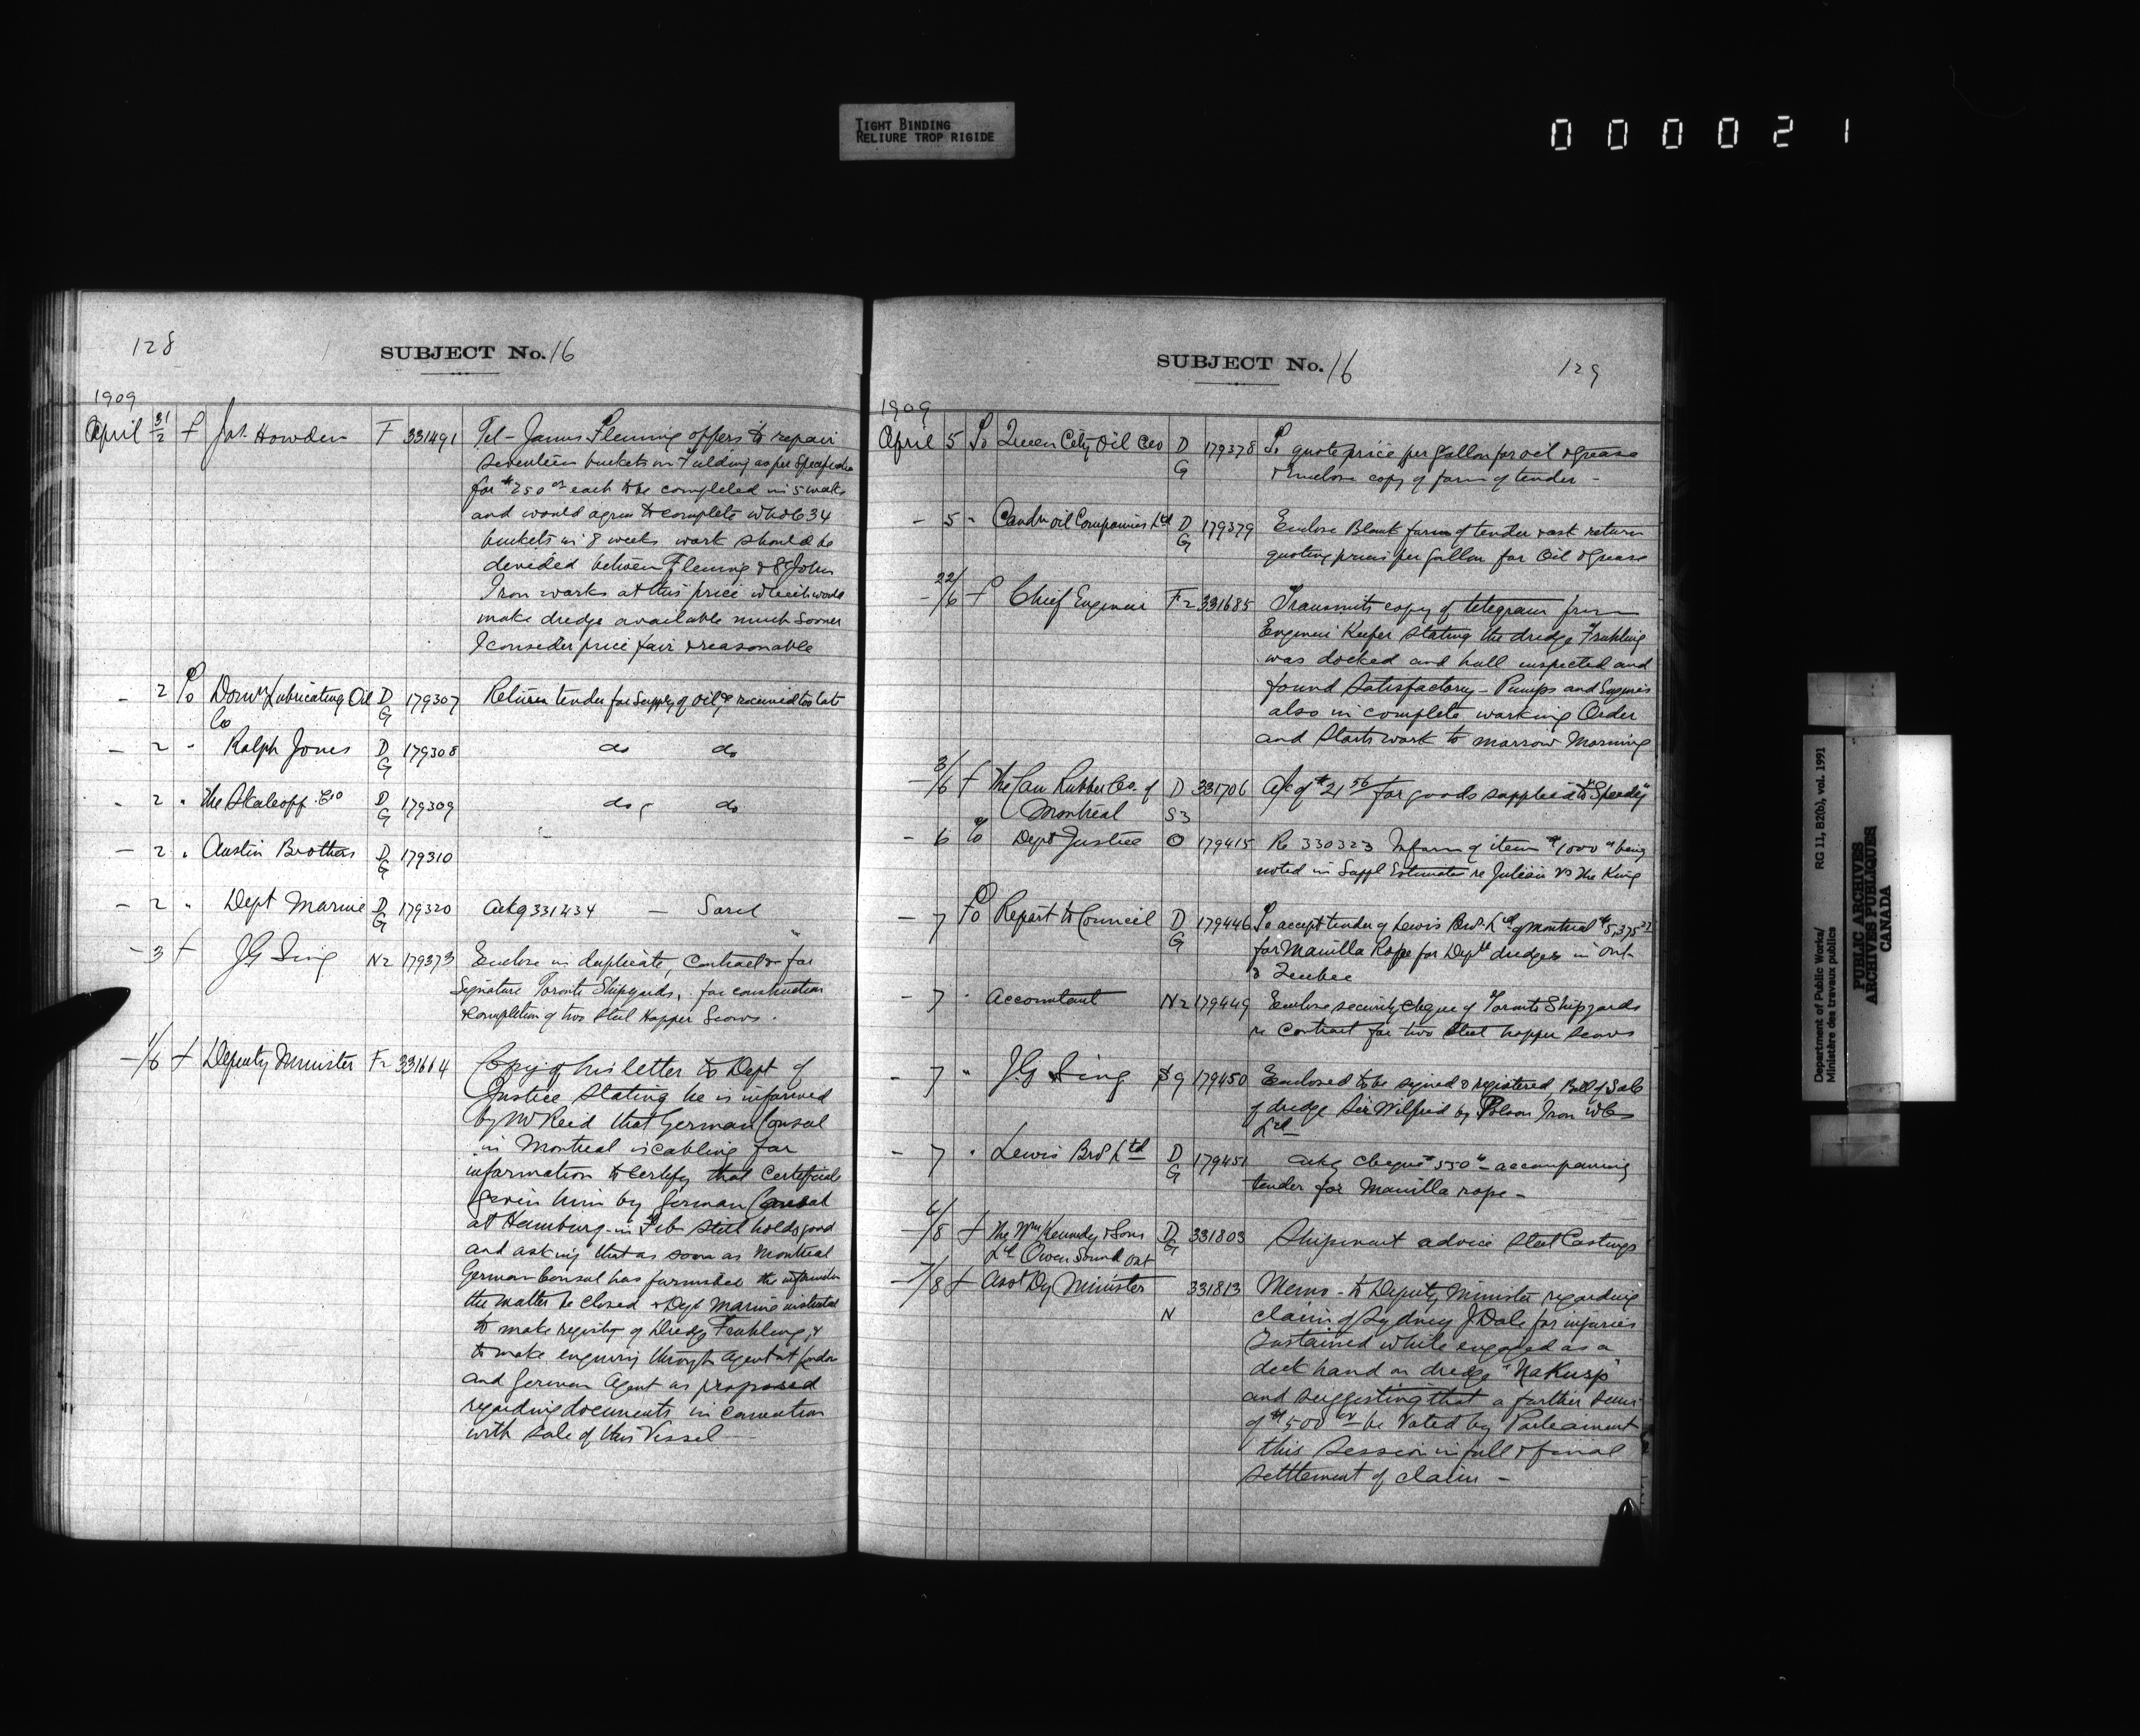 TIGHT BINDING
RELIURE TROP RIGIDE
000021
128
SUBJECT No. 16
1909
April 31/2 f Jas. Howden F 331491 Tel - James Fleming offers to repair
seventeen buckets on Fielding as per Specification
for $250 00 each to be completed in 5 weeks
and would agree to complete whole 34
buckets in 8 weeks work should be
devided between Fleming & St John
Iron works at this price which would
make dredge available much sooner
I consider price fair & reasonable
- 2 To Domn Lubricating Oil Co D G 179307 Return tender for supply of oil & received too late
- 2 " Ralph Jones D G 179308 do do
- 2 " The Skaleoff Co D G 179309 do do
- 2 " Austin Brothers D G 179310
- 2 " Dept Marine D G 179320 Ackg 331434 - Sorel
- 3 f J G Sing N2 179373 Enclose in duplicate, Contract for
signature Toronto Shipyards, for construction
& completion of two Steel Hopper Scows.
- 1/6 f Deputy Minister F2 331614 Copy of his letter to Dept of
Justice stating he is informed
by Mr Reid that German Consul
in Montreal is cabling for
information to certify that Certificate
given him by German Consul
at Hamburg in Feb still holds good
and asking that as soon as Montreal
German Consul has furnished the information
the matter be closed & Dept Marine instructed
to make registry of Dredge Fruhling, &
to make enquiry through Agent at London
and German Agent as proposed
regarding documents in connection
with sale of this Vessel
SUBJECT No. 16
129
1909
April 5 To Queen City Oil Co D G 179378 To quote price per gallon for oil & grease
& enclose copy of form of tender -
- 5 " Candn Oil Companies Ltd D G 179379 Enclose Blank form of tender & ask return
quoting prices per gallon for Oil & Grease
- 22/6 f Chief Engineer F2 331685 Transmits copy of telegram from
Engineer Keefer stating the dredge Fruhling
was docked and hull inspected and
found satisfactory - Pumps and Engines
also in complete working Order
and starts work to morrow Morning
- 3/6 f The Can Rubber Co. of Montreal D S3 331706 a/c of $21 56 for goods supplied to "Speedy"
- 6 To Dept Justice O 179415 Re 330323 Inform of item $1000 00 being
noted in Suppl Estimates re Julien vs The King
- 7 To Report to Council D G 179446 To accept tender of Lewis Bros Ltd of Montreal $5,375
for Manilla Rope for Deptl dredges in Ont.
& Quebec
- 7 " Accountant N2 179449 Enclose security cheque of Toronto Shipyards
re Contract for two Steel hopper scows
- 7 " J.G Sing 9 179450 Enclosed to be signed & registered Bill of Sale
of dredge Sir Wilfrid by Polson Iron Wks
Ltd
- 7 " Lewis Bros Ltd D G 179451 Ackg cheque $550 00 - accompanying
tender for Manilla rope -
- 6/8 f The Wm Kennedy & Sons Ld Owen Sound Ont D G 331803 Shipment advice Steel Castings
- 7/8 f Asst Dy Minister N 331813 Memo - to Deputy Minister regarding
claim of Sydney J Dale for injuries
sustained while engaged as a
deck hand on dredge "Nakusp"
and suggesting that a further sum
of $500 00 be voted by Parliament
this session in full & final
settlement of claim -
Department of Public Works/
Ministère des travaux publics
RG 11, B2(b), vol. 1991
PUBLIC ARCHIVES
ARCHIVES PUBLIQUES
CANADA